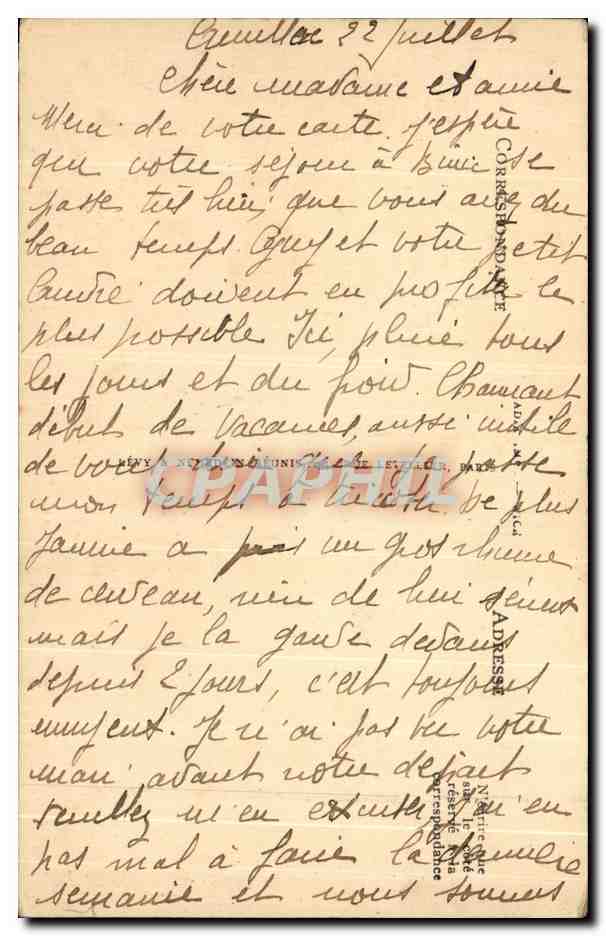 22 juillet
Chère madame et amie
Merci de votre carte. J'espère
que votre séjour à Binic se
passe très bien, que vous avez du
beau temps. Guy et votre petit
André doivent en profiter le
plus possible Ici, pluie tous
les jours et du froid. Charmant
début de vacances, aussi inutile
de vous dire que je passe
mon temps à De plus
Jannie a pris un gros rhume
de cerveau, rien de bien sérieux
mais je la garde dedans
depuis 2 jours, c'est toujours
ennuyeux. Je n'ai pas vu votre
mari avant notre départ
veuillez m'en excuser, j'en
pas mal à faire la dernière
semaine et nous sommes
CORRESPONDANCE
ADRESSE
LÉVY & NEURDEIN RÉUNIS, LETELLIER, PARIS
N'écrire que
sur le côté
réservé à la
correspondance
CPAPHIL